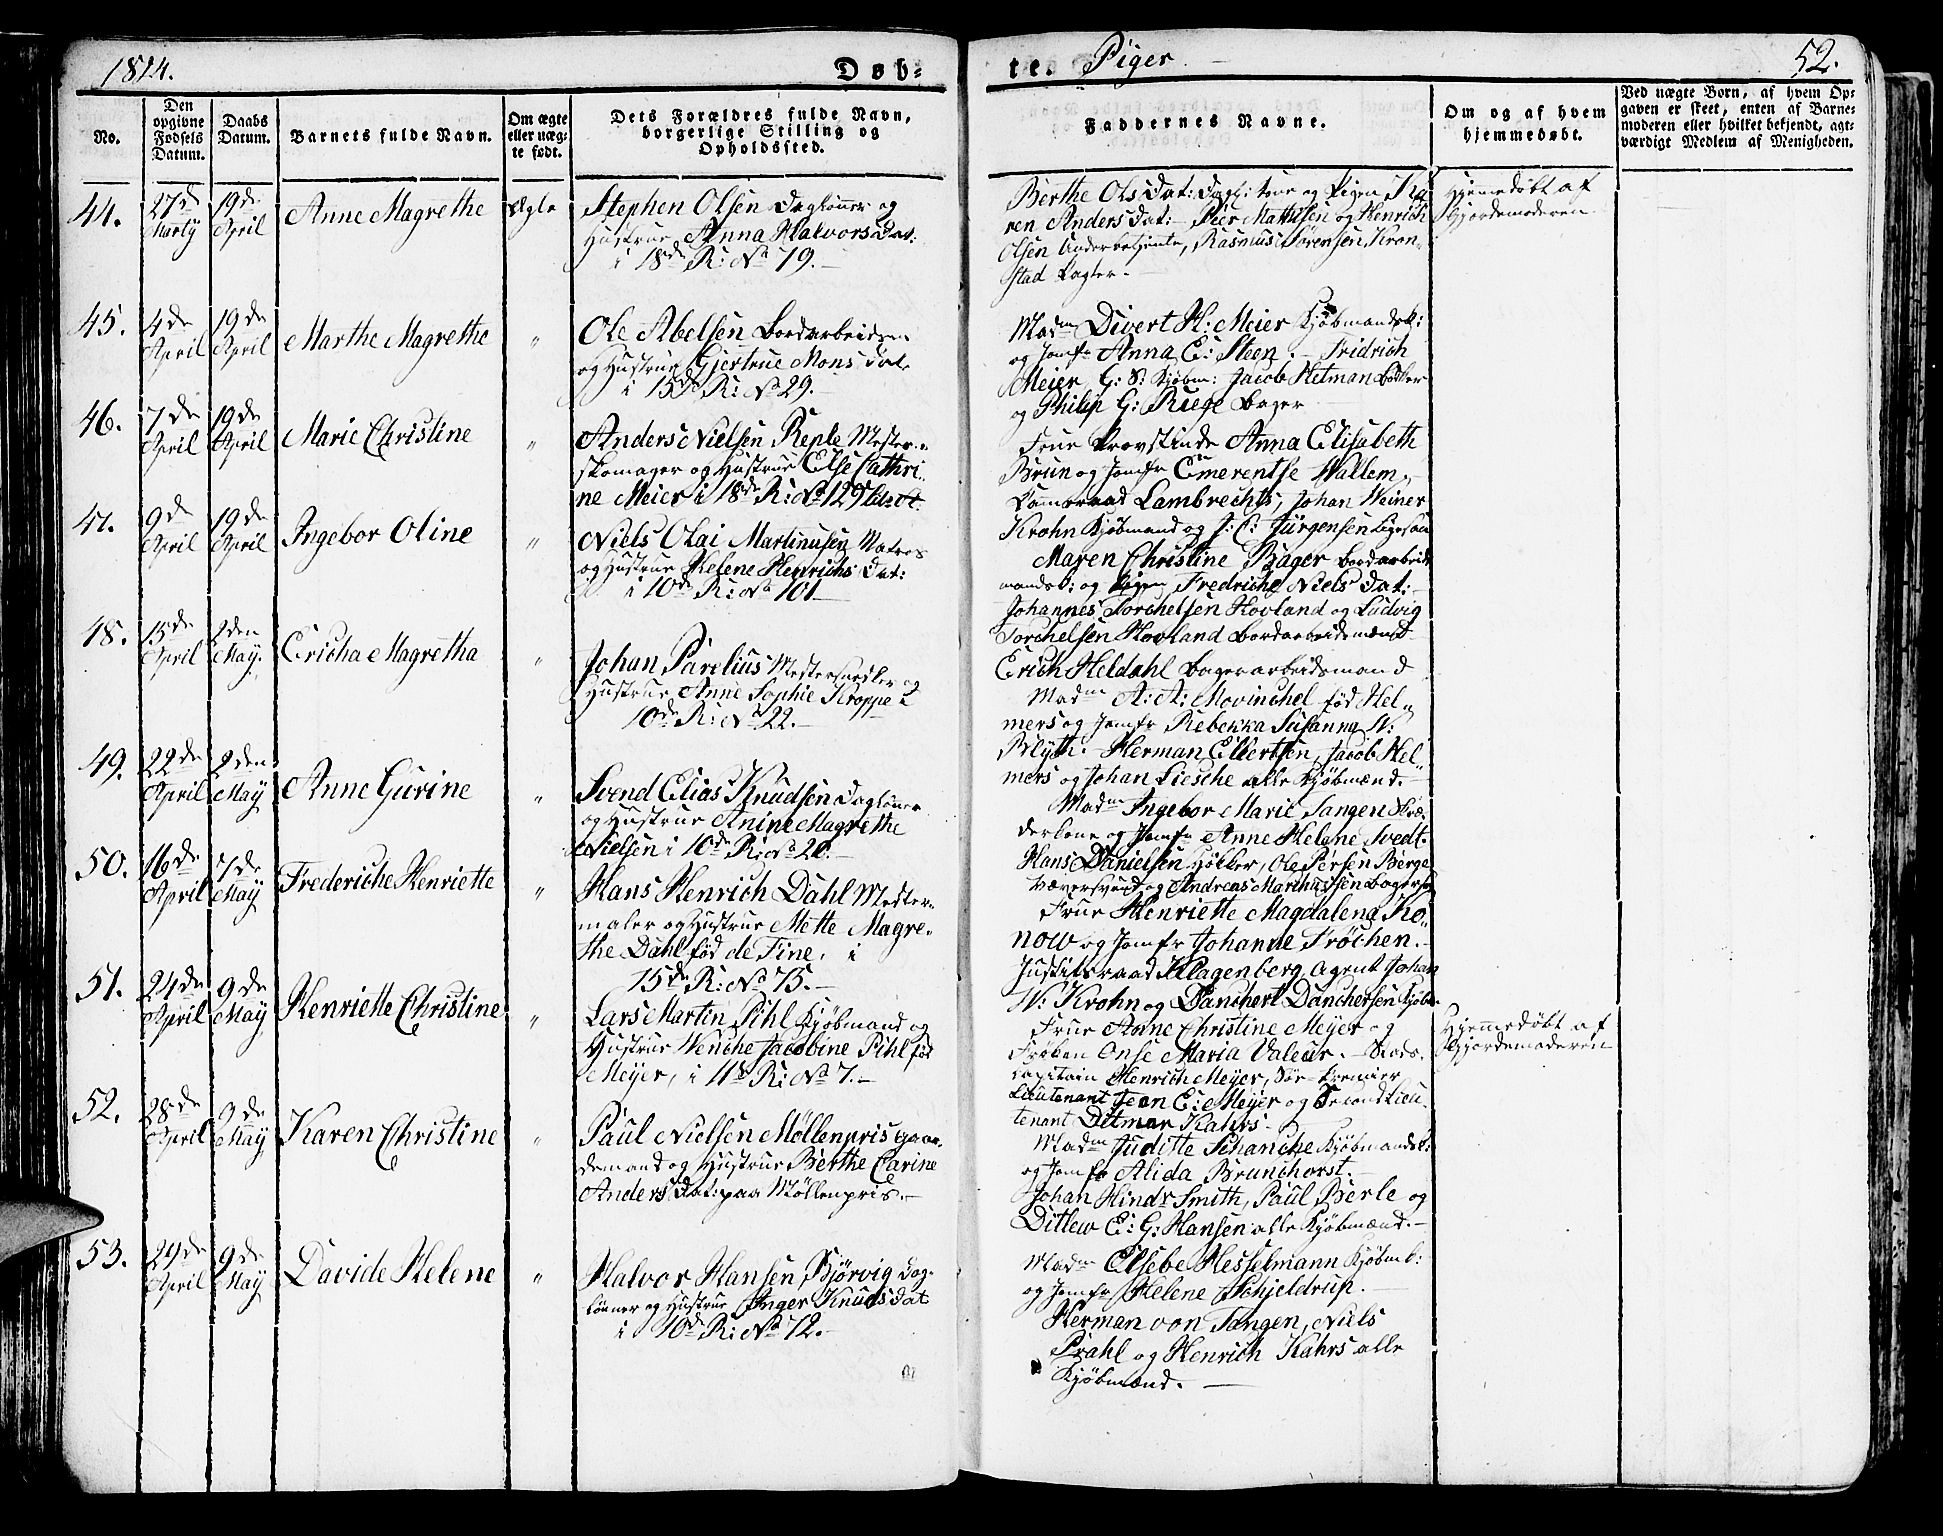 1814.
Døb-
te. Piger
52.
No.
Den opgivne Fødsels Datum.
Daabs Datum.
Barnets fulde Navn.
Om ægte eller uæg-
te født.
Dets Forældres fulde Navn,
borgerlige Stilling og
Opholdssted.
Faddernes Navne.
Om og af hvem
hjemmedøbt.
Ved uægte Børn, af hvem Op-
gaven er skeet, enten af Barne-
moderen eller hvilket bekjendt, agt-
værdigt Medlem af Menigheden.
44.
27de
Marty
19de
April
Anne Magrethe
Ægte
Stephen Olsen Daglønner og
Hustrue Anna Halvors Dat:
i 18de R: No 19.
Berthe Ols Dat: Dagl: kone og Pigen Ka
ren Anders Dat: - Peer Mathisen og Henrich
Olsen Underbetjente, Rasmus Sørensen Kron-
stad
Hjemedøbt af
Gjordemoderen
45.
4de
April
19de
April
Marthe Magrethe
"
Ole Abelsen Bordarbeider
og Hustrue Gjertrue Mons Dat.
i 15de R: No 29.
Madm Divert H: Meier Kjøbmandsk:
og Jomfr Anna E: Steen. - Fridrich
Meier G: S: Kjøbm: Jacob Hitman Bødker
og Philip G: Riege Bager
46.
7de
April
19de
April
Marie Christine
"
Anders Nielsen Reple Mester-
skomager og Hustrue Else Cathri-
ne Meier i 18de R: No 129
Frue Provstinde Anna Elisabeth
Brun og Jomfr Emerentse Wallem.
Lambrechts, Johan Weiner
Krohn Kjøbmand og J: C: Jürgensen
47.
9de
April
19de
April
Ingebor Oline
"
Niels Olai Martinusen Matros
og Hustrue Helene Henrichs Dat:
i 10de R: No 101
Maren Christine Bager Bordarbeids
mandsk: og Pigen Fredriche Niels Dat:
Johannes Torchelsen Hovland og Ludvig
Torchelsen Hovland Bordarbeidsmænd
Erich Heldahl Bagerarbeidsmand
48.
15de
April
2den
May.
Ericha Magretha
"
Johan Parelius Mestersnedker og
Hustrue Anne Sophie Kroppe
10de R: No 22.
Madm A: A: Movinchel fød Hel-
mers og Jomfr Rebekka Susanna W:
Blyth. - Herman Ellertsen, Jacob Hel-
mers og Johan Liesche alle Kjøbmænd.
49.
22de
April
2den
May
Anne Gurine
"
Svend Elias Knudsen Daglønner
og Hustrue Anine Magrethe
Nielsen i 10de R: No 20.
Madm Ingebor Marie Tangen
og Jomfr Anne Helene Svedt.
Hans Danielsen Høkker, Ole Persen Berge
Væversvend og Andreas Marthinussen
50.
16de
April
7de
May
Frederiche Henriette
"
Hans Henrich Dahl Mester-
maler og Hustrue Mette Magre-
the Dahl fød de Fine, i
15de R: No 75.
Frue Henriette Magdalena Ko-
now og Jomfr Johanne Frøchen.
Justitsraad Klagenberg, Agent Johan
W: Krohn og Danchert Danchersen Kjøbm.
51.
24de
April
9de
May
Henriette Christine
"
Lars Martin Pihl Kjøbmand og
Hustrue Wenche Jacobine Pihl fød
Meyer, i 11te R: No 7.
Frue Anne Christine Meyer og
Frøken Onse Maria Valeur. - Stads-
Capitain Henrich Meyer, Søe-Premier
Lieutenant Jean E: Meyer og Second Lieu-
tenant Ditmar Kahrs.
Hjemedøbt af
Gjordemoderen
52.
28de
April
9de
May
Karen Christine
"
Paul Nielsen Møllenpris Gaar-
demand og Hustrue Berthe Carine
Anders Dat: paa Møllenpris.
Madm Juditte Schancke Kjøbmandsk:
og Jomfr Alida Brunchorst.
Johan Hindr Smith, Paul Berle og
Ditlew E: G: Hansen alle Kjøbmænd.
53.
29de
April
9de
May
Davide Helene
"
Halvor Hansen Bjørvig Dag-
lønner og Hustrue Inger Knuds Dat
i 10de R: No 12.
Madm Elsebe Hesselmann Kjøbmk:
og Jomfr Helene Schjeldrup.
Herman von Tangen, Niels
Prahl og Henrich Kahrs alle
Kjøbmænd.